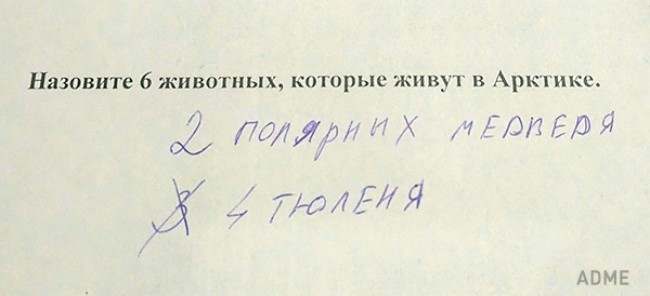 Назовите 6 животных, которые живут в Арктике.
2 полярных медведя
4 тюленя
ADME